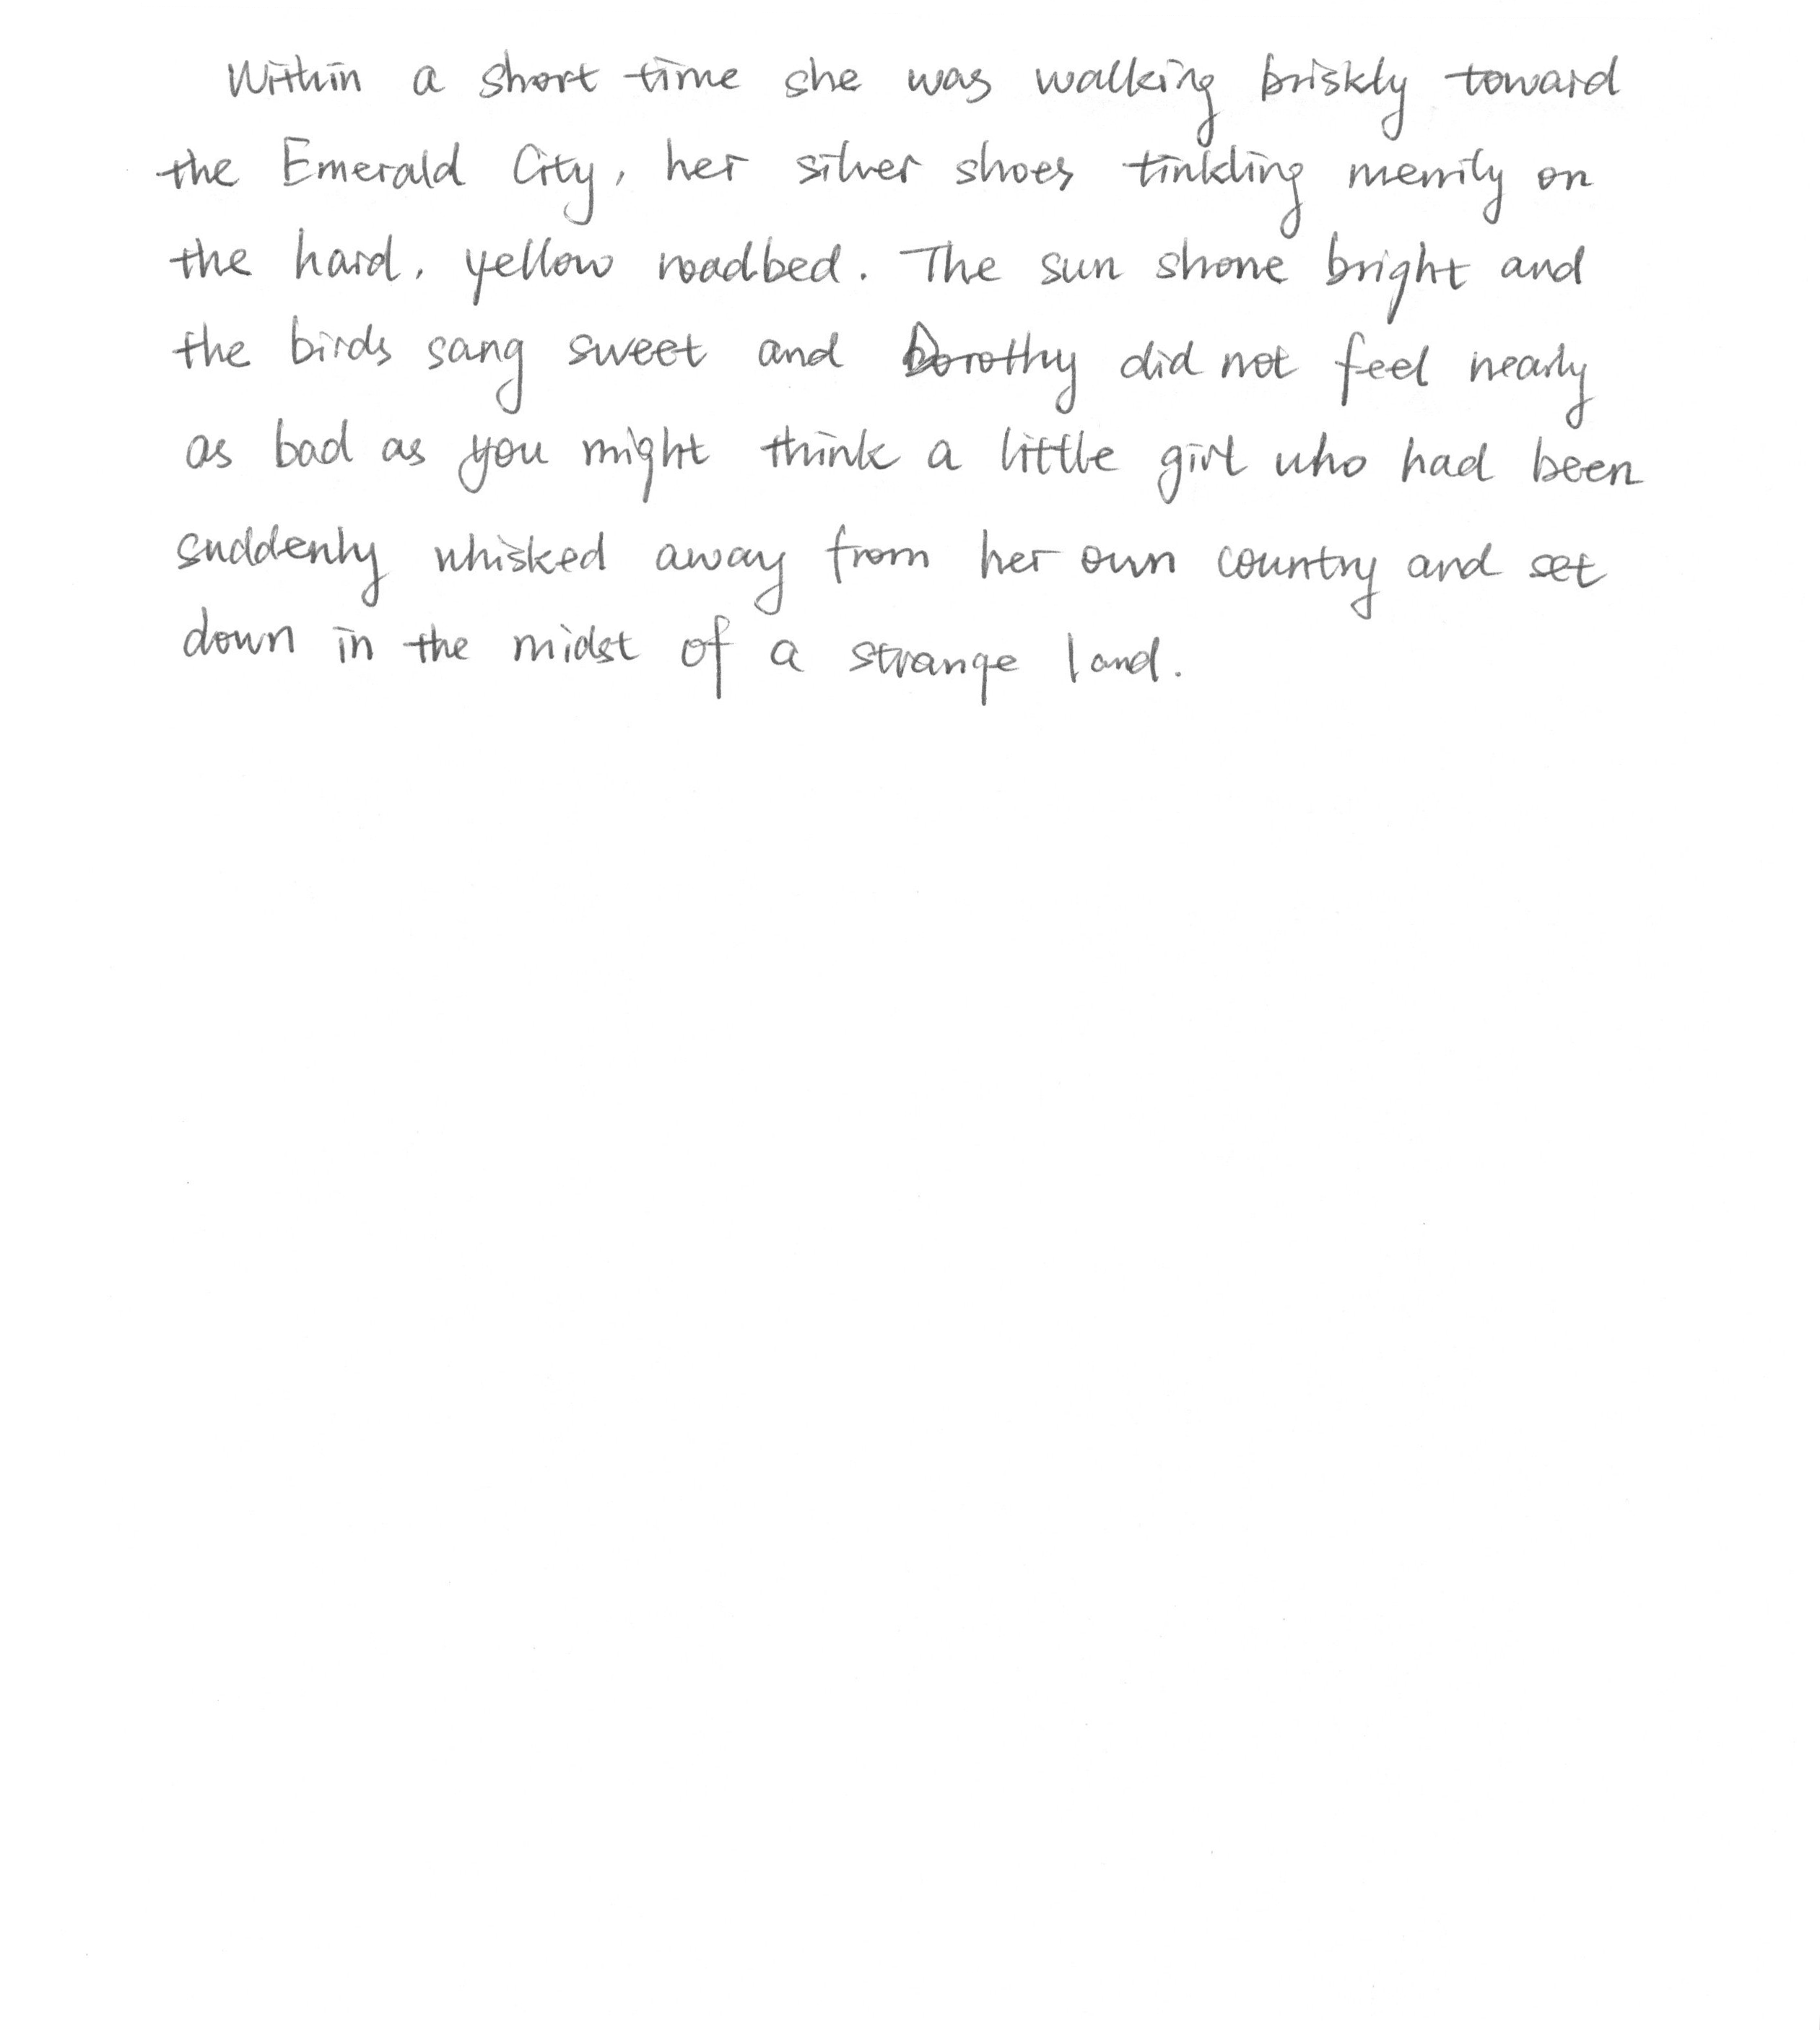 Within a short time she was walking briskly toward
the Emerald City, her silver shoes tinkling merrily on
the hard, yellow roadbed. The sun shone bright and
the birds sang sweet and Dorothy did not feel nearly
as bad as you might think a little girl who had been
suddenly whisked away from her own country and set
down in the midst of a strange land.